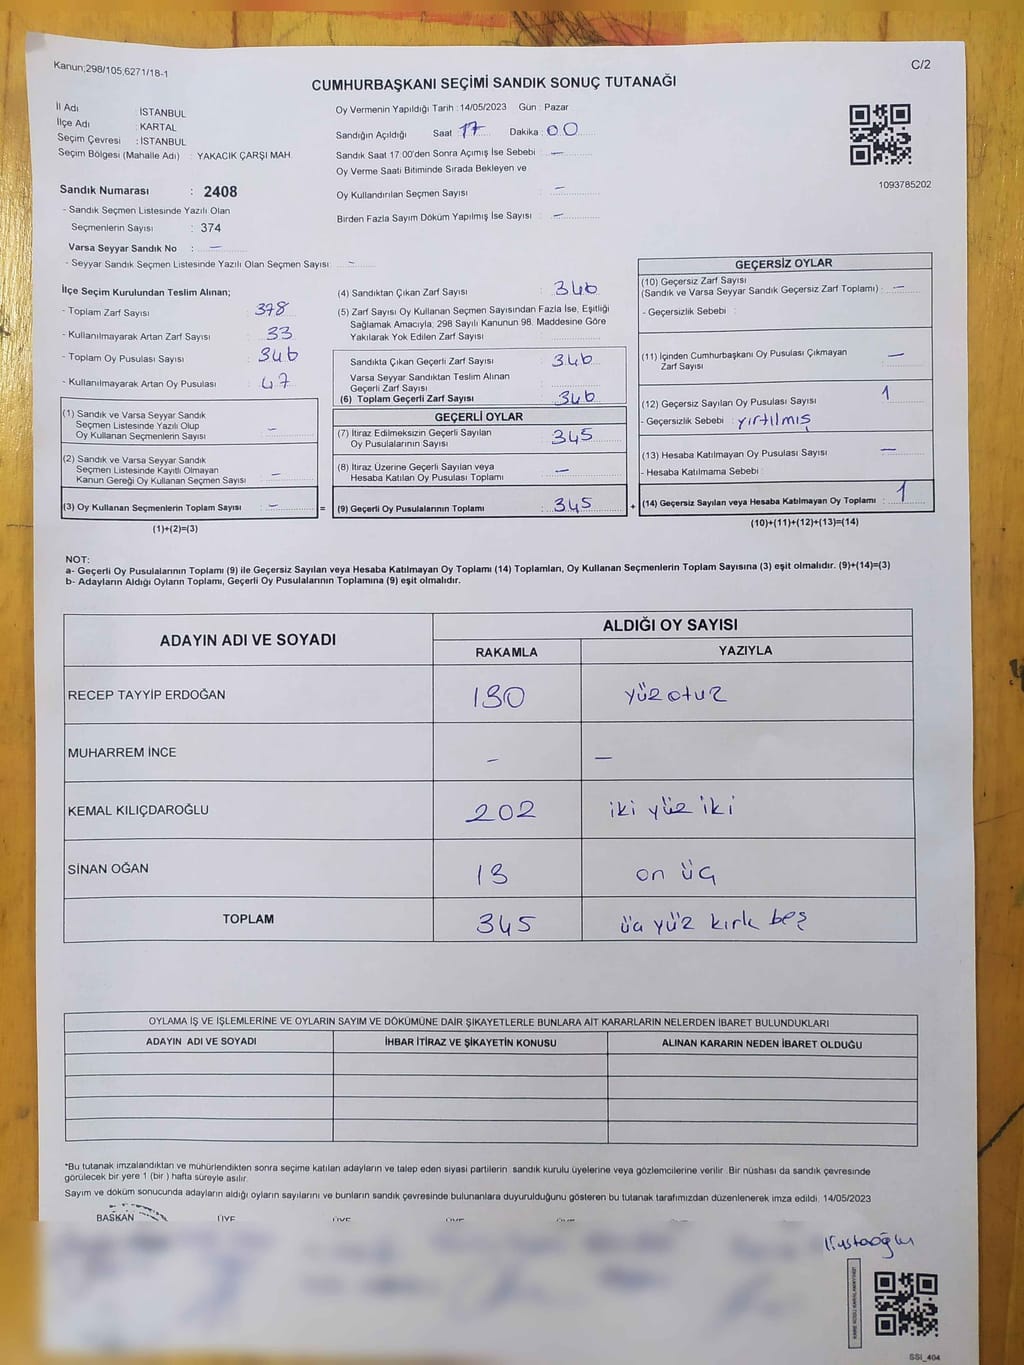 Kanun;298/105,6271/18-1
C/2
CUMHURBAŞKANI SEÇİMİ SANDIK SONUÇ TUTANAĞI
İl Adı : İSTANBUL
İlçe Adı : KARTAL
Seçim Çevresi : İSTANBUL
Seçim Bölgesi (Mahalle Adı) : YAKACIK ÇARŞI MAH
Sandık Numarası : 2408
- Sandık Seçmen Listesinde Yazılı Olan
Seçmenlerin Sayısı : 374
Varsa Seyyar Sandık No : —
- Seyyar Sandık Seçmen Listesinde Yazılı Olan Seçmen Sayısı : —
Oy Vermenin Yapıldığı Tarih : 14/05/2023 Gün : Pazar
Sandığın Açıldığı Saat : 17 Dakika : 00
Sandık Saat 17:00'den Sonra Açımış İse Sebebi : —
Oy Verme Saati Bitiminde Sırada Bekleyen ve
Oy Kullandırılan Seçmen Sayısı : —
Birden Fazla Sayım Döküm Yapılmış İse Sayısı : —
1093785202
İlçe Seçim Kurulundan Teslim Alınan;
- Toplam Zarf Sayısı : 378
- Kullanılmayarak Artan Zarf Sayısı : 33
- Toplam Oy Pusulası Sayısı : 346
- Kullanılmayarak Artan Oy Pusulası : 47
(1) Sandık ve Varsa Seyyar Sandık
Seçmen Listesinde Yazılı Olup
Oy Kullanan Seçmenlerin Sayısı : —
(2) Sandık ve Varsa Seyyar Sandık
Seçmen Listesinde Kayıtlı Olmayan
Kanun Gereği Oy Kullanan Seçmen Sayısı : —
(3) Oy Kullanan Seçmenlerin Toplam Sayısı : —
(1)+(2)=(3)
(4) Sandıktan Çıkan Zarf Sayısı : 346
(5) Zarf Sayısı Oy Kullanan Seçmen Sayısından Fazla İse, Eşitliği
Sağlamak Amacıyla; 298 Sayılı Kanunun 98. Maddesine Göre
Yakılarak Yok Edilen Zarf Sayısı :
Sandıkta Çıkan Geçerli Zarf Sayısı : 346
Varsa Seyyar Sandıktan Teslim Alınan
Geçerli Zarf Sayısı :
(6) Toplam Geçerli Zarf Sayısı : 346
=
GEÇERLİ OYLAR
(7) İtiraz Edilmeksizin Geçerli Sayılan
Oy Pusulalarının Sayısı : 345
(8) İtiraz Üzerine Geçerli Sayılan veya
Hesaba Katılan Oy Pusulaları Toplamı : —
(9) Geçerli Oy Pusulalarının Toplamı : 345
+
GEÇERSİZ OYLAR
(10) Geçersiz Zarf Sayısı
(Sandık ve Varsa Seyyar Sandık Geçersiz Zarf Toplamı) : —
- Geçersizlik Sebebi :
(11) İçinden Cumhurbaşkanı Oy Pusulası Çıkmayan
Zarf Sayısı : —
(12) Geçersiz Sayılan Oy Pusulası Sayısı : 1
- Geçersizlik Sebebi : yırtılmış
(13) Hesaba Katılmayan Oy Pusulası Sayısı : —
- Hesaba Katılmama Sebebi :
(14) Geçersiz Sayılan veya Hesaba Katılmayan Oy Toplamı : 1
(10)+(11)+(12)+(13)=(14)
NOT:
a- Geçerli Oy Pusulalarının Toplamı (9) ile Geçersiz Sayılan veya Hesaba Katılmayan Oy Toplamı (14) Toplamları, Oy Kullanan Seçmenlerin Toplam Sayısına (3) eşit olmalıdır. (9)+(14)=(3)
b- Adayların Aldığı Oyların Toplamı, Geçerli Oy Pusulalarının Toplamına (9) eşit olmalıdır.
ADAYIN ADI VE SOYADI
ALDIĞI OY SAYISI
RAKAMLA YAZIYLA
RECEP TAYYİP ERDOĞAN 130 yüz otuz
MUHARREM İNCE – —
KEMAL KILIÇDAROĞLU 202 iki yüz iki
SİNAN OĞAN 13 on üç
TOPLAM 345 üç yüz kırk beş
OYLAMA İŞ VE İŞLEMLERİNE VE OYLARIN SAYIM VE DÖKÜMÜNE DAİR ŞİKAYETLERLE BUNLARA AİT KARARLARIN NELERDEN İBARET BULUNDUKLARI
ADAYIN ADI VE SOYADI İHBAR İTİRAZ VE ŞİKAYETİN KONUSU ALINAN KARARIN NEDEN İBARET OLDUĞU
*Bu tutanak imzalandıktan ve mühürlendikten sonra seçime katılan adayların ve talep eden siyasi partilerin sandık kurulu üyelerine veya gözlemcilerine verilir. Bir nüshası da sandık çevresinde
görülecek bir yere 1 (bir ) hafta süreyle asılır.
Sayım ve döküm sonucunda adayların aldığı oyların sayılarını ve bunların sandık çevresinde bulunanlara duyurulduğunu gösteren bu tutanak tarafımızdan düzenlenerek imza edildi. 14/05/2023
BAŞKAN ÜYE ÜYE ÜYE ÜYE
SSI_404